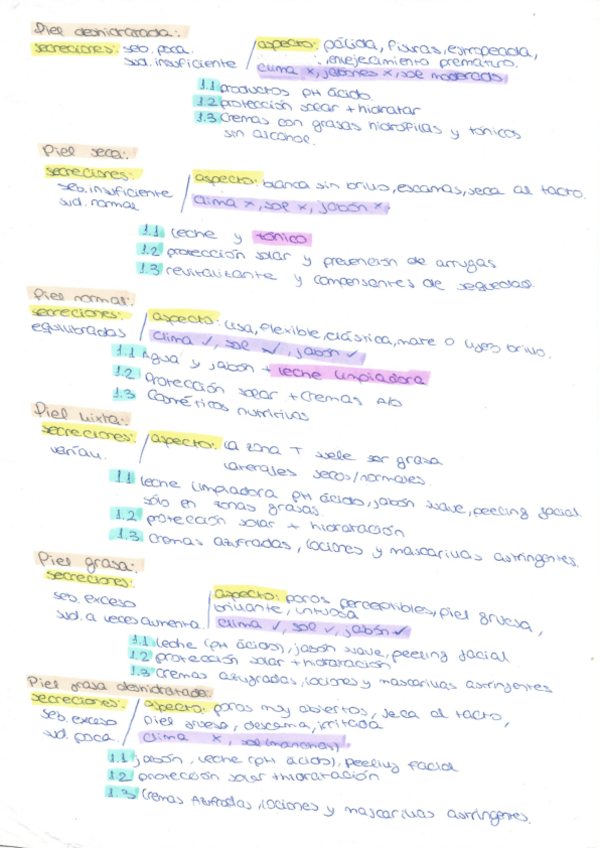 Piel deshidratada:
secreciones: seb. poca. / aspecto: pálida, fisuras, estropeada,
sud. insuficiente envejecimiento prematuro.
clima x, jabones x, sol moderado
1.1 productos pH ácido.
1.2 protección solar + hidratar
1.3 cremas con grasas hidrófilas y tónicos
sin alcohol.
Piel seca:
secreciones: / aspecto: blanca sin brillo, escamas, seca al tacto.
seb. insuficiente clima x, sol x, jabón x
sud. normal
1.1 leche y tónico
1.2 protección solar y prevención de arrugas
1.3 revitalizante y compensantes de sequedad.
Piel normal:
secreciones: / aspecto: lisa, flexible, elástica, mate o ligero brillo.
equilibradas clima ✓, sol ✓, jabón ✓
1.1 Agua y jabón + leche limpiadora
1.2 Protección solar + cremas A/O
1.3 Cosméticos nutritivos
Piel mixta:
secreciones: / aspecto: La zona T suele ser grasa
varían. laterales secos/normales.
1.1 leche limpiadora pH ácido, jabón suave, peeling facial
sólo en zonas grasas.
1.2 protección solar + hidratación
1.3 cremas azufradas, lociones y mascarillas astringentes.
Piel grasa:
secreciones: / aspecto: poros perceptibles, piel gruesa,
seb. exceso brillante, untuosa
sud. a veces aumenta. clima ✓, sol ✓, jabón ✓
1.1 leche (pH ácido), jabón suave, peeling facial.
1.2 protección solar + hidratación
1.3 cremas azufradas, lociones y mascarillas astringentes
Piel grasa deshidratada:
secreciones: / aspecto: poros muy abiertos, seca al tacto,
seb. exceso piel gruesa, descama, irritada
sud. poca. clima x, sol (manchas)
1.1 jabón, leche (pH ácido), peeling facial
1.2 protección solar + hidratación
1.3 Cremas Azufradas, lociones y mascarillas astringentes.